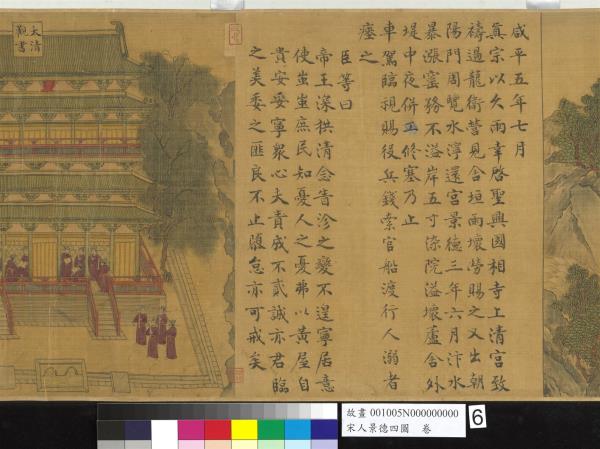 咸平五年七月
真宗以久雨幸啓聖興國相寺上清宮致
禱過龍衛營見舍垣雨壞勞賜之又出朝
陽門周覽水濘還宮景德三年六月汴水
暴漲蜜務不溢岸五寸涤院溢壞蘆舍外
堤中夜併工修塞乃止
車駕臨視賜役兵錢索官船渡行人溺者
瘞之
臣等曰
帝王深拱清念眚沴之變不遑寧居意
使蚩蚩庶民知憂人之憂弗以黃屋自
貴安妥寧衆心夫責成不貳誠亦君臨
之美委之匪良不止隳怠亦可戒矣
太清
觀書
故畫 001005N000000000
宋人景德四圖 卷
6